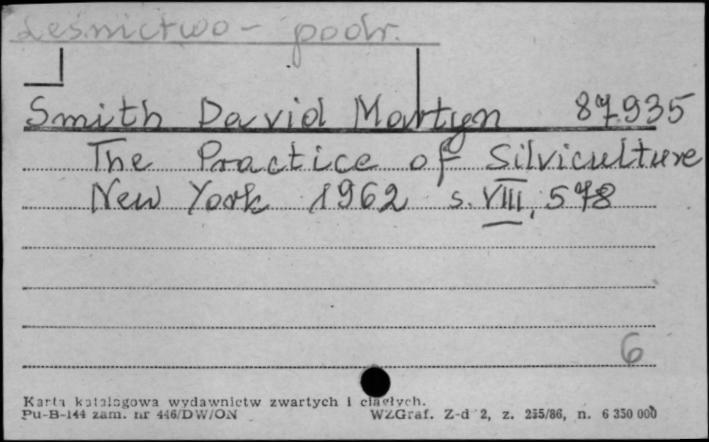 Leśnictwo - podr.
Smith David Martyn 87.935
The Practice of Silviculture
New York 1962 s. VIII, 578
6
Karta katalogowa wydawnictw zwartych i ciągłych.
Pu-B-144 zam. nr 446/DW/ON WZGraf. Z-d 2, z. 255/86, n. 6 350 000